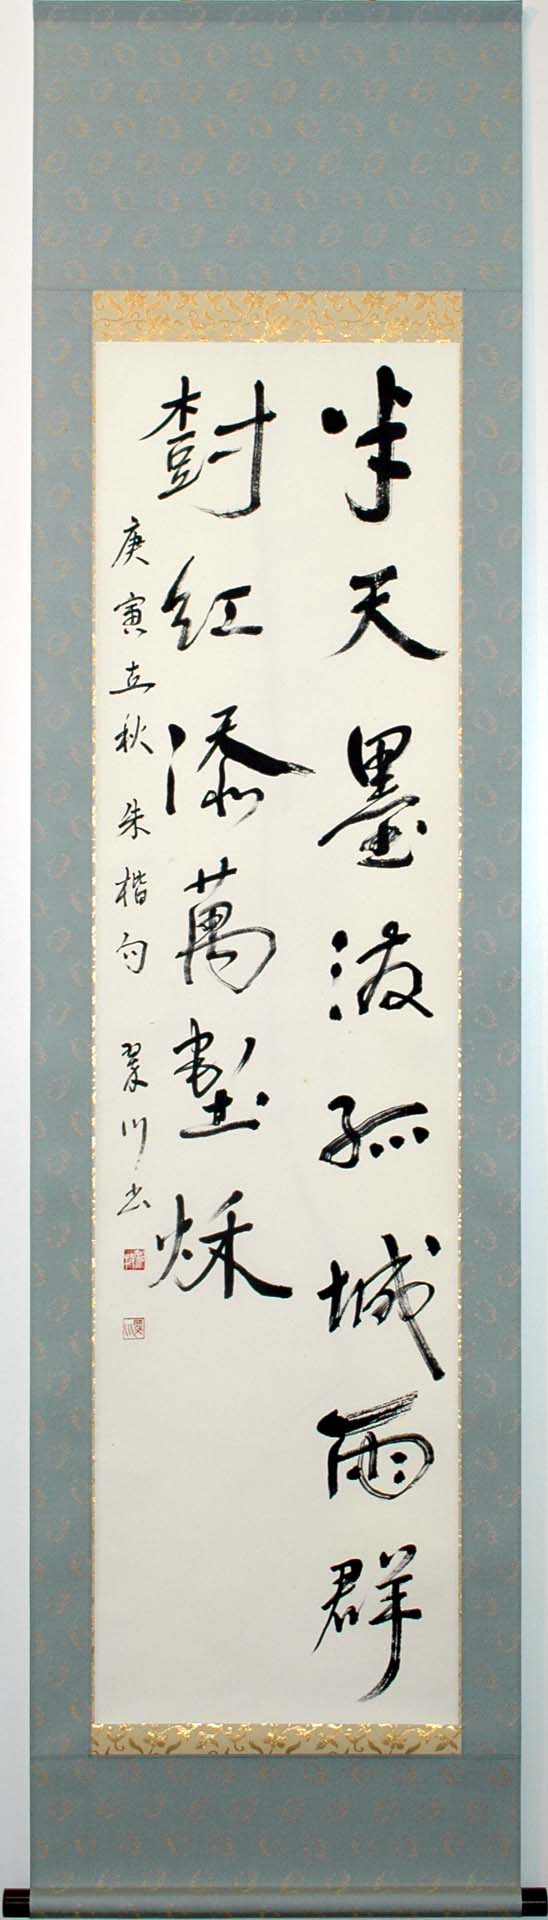 半天墨潑孤城雨群
樹紅添萬壑秌
庚寅立秋 朱楷句 翠川书